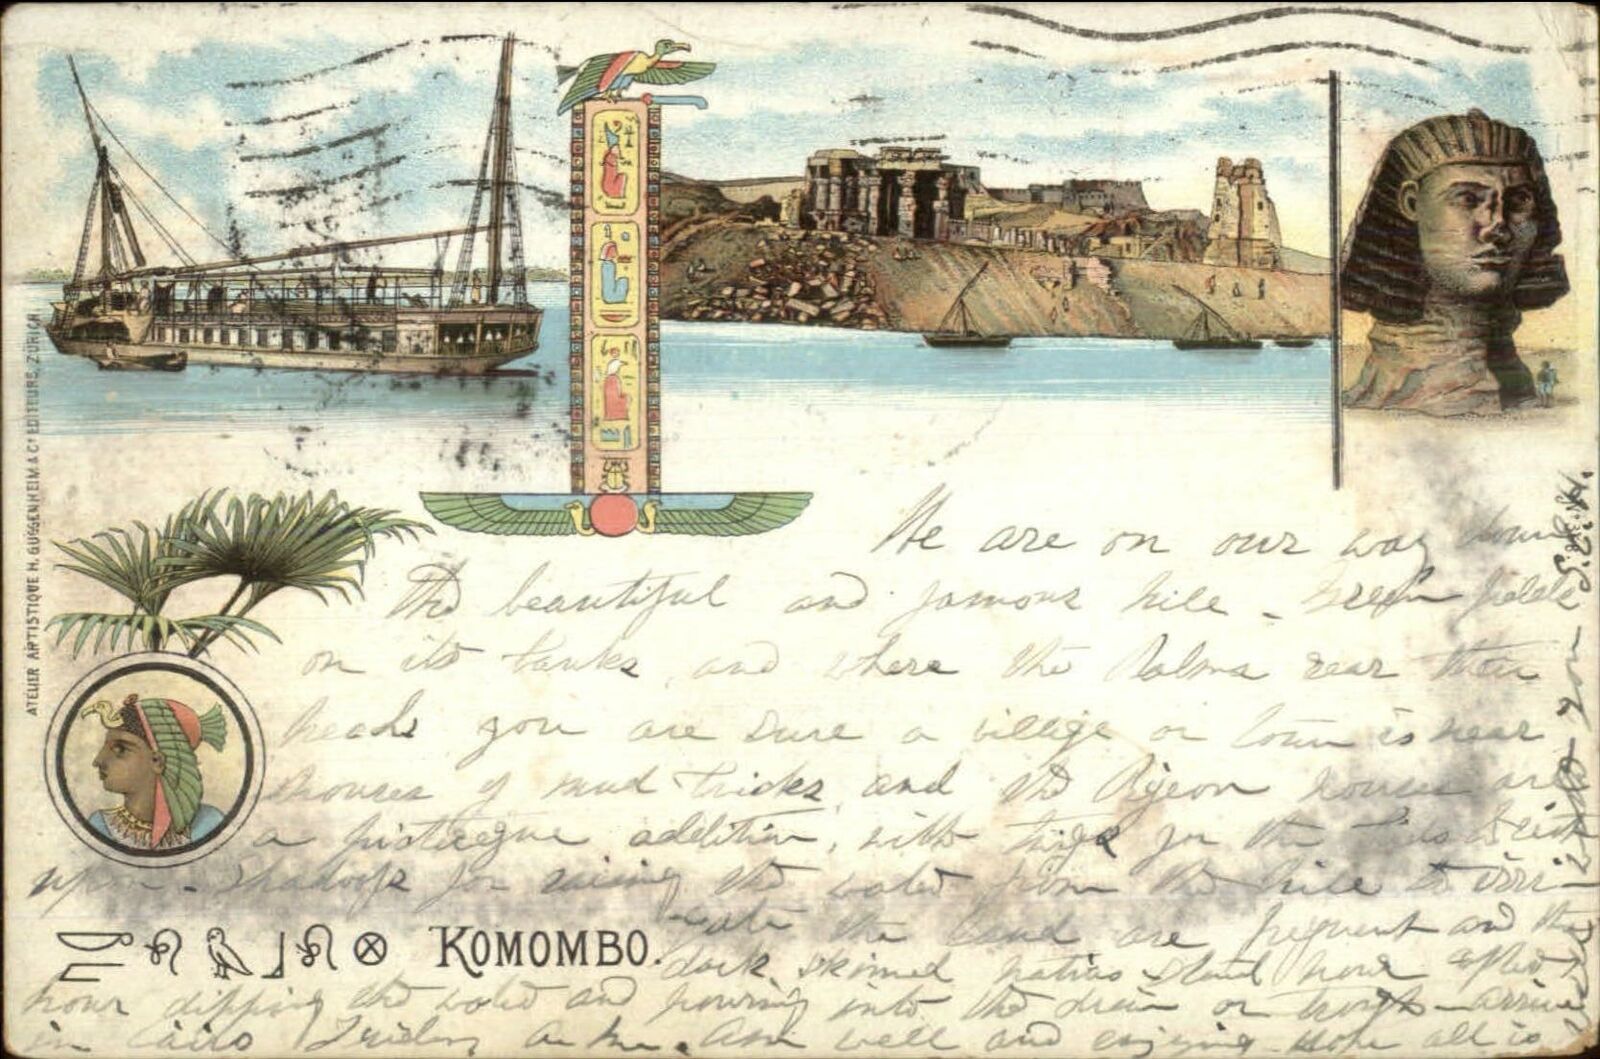 We are on our way down
the beautiful and famous Nile - Green fields
on its banks and where the Palms rear their
heads you are sure a village or town is near
houses of mud bricks, and the Pigeon houses are
a picturesque addition, with twigs for the birds to
upon - Shadoofs for raising the water from the Nile to irri-
-gate the land are frequent and the
dark skinned natives stand hour after
hour dipping the water and pouring into the drain or trough - arrive
in Cairo Friday Am well and enjoying - Hope all is
well with you
S.E.H.
KOMOMBO.
ATELIER ARTISTIQUE H. GUGGENHEIM & Co EDITEURS, ZÜRICH